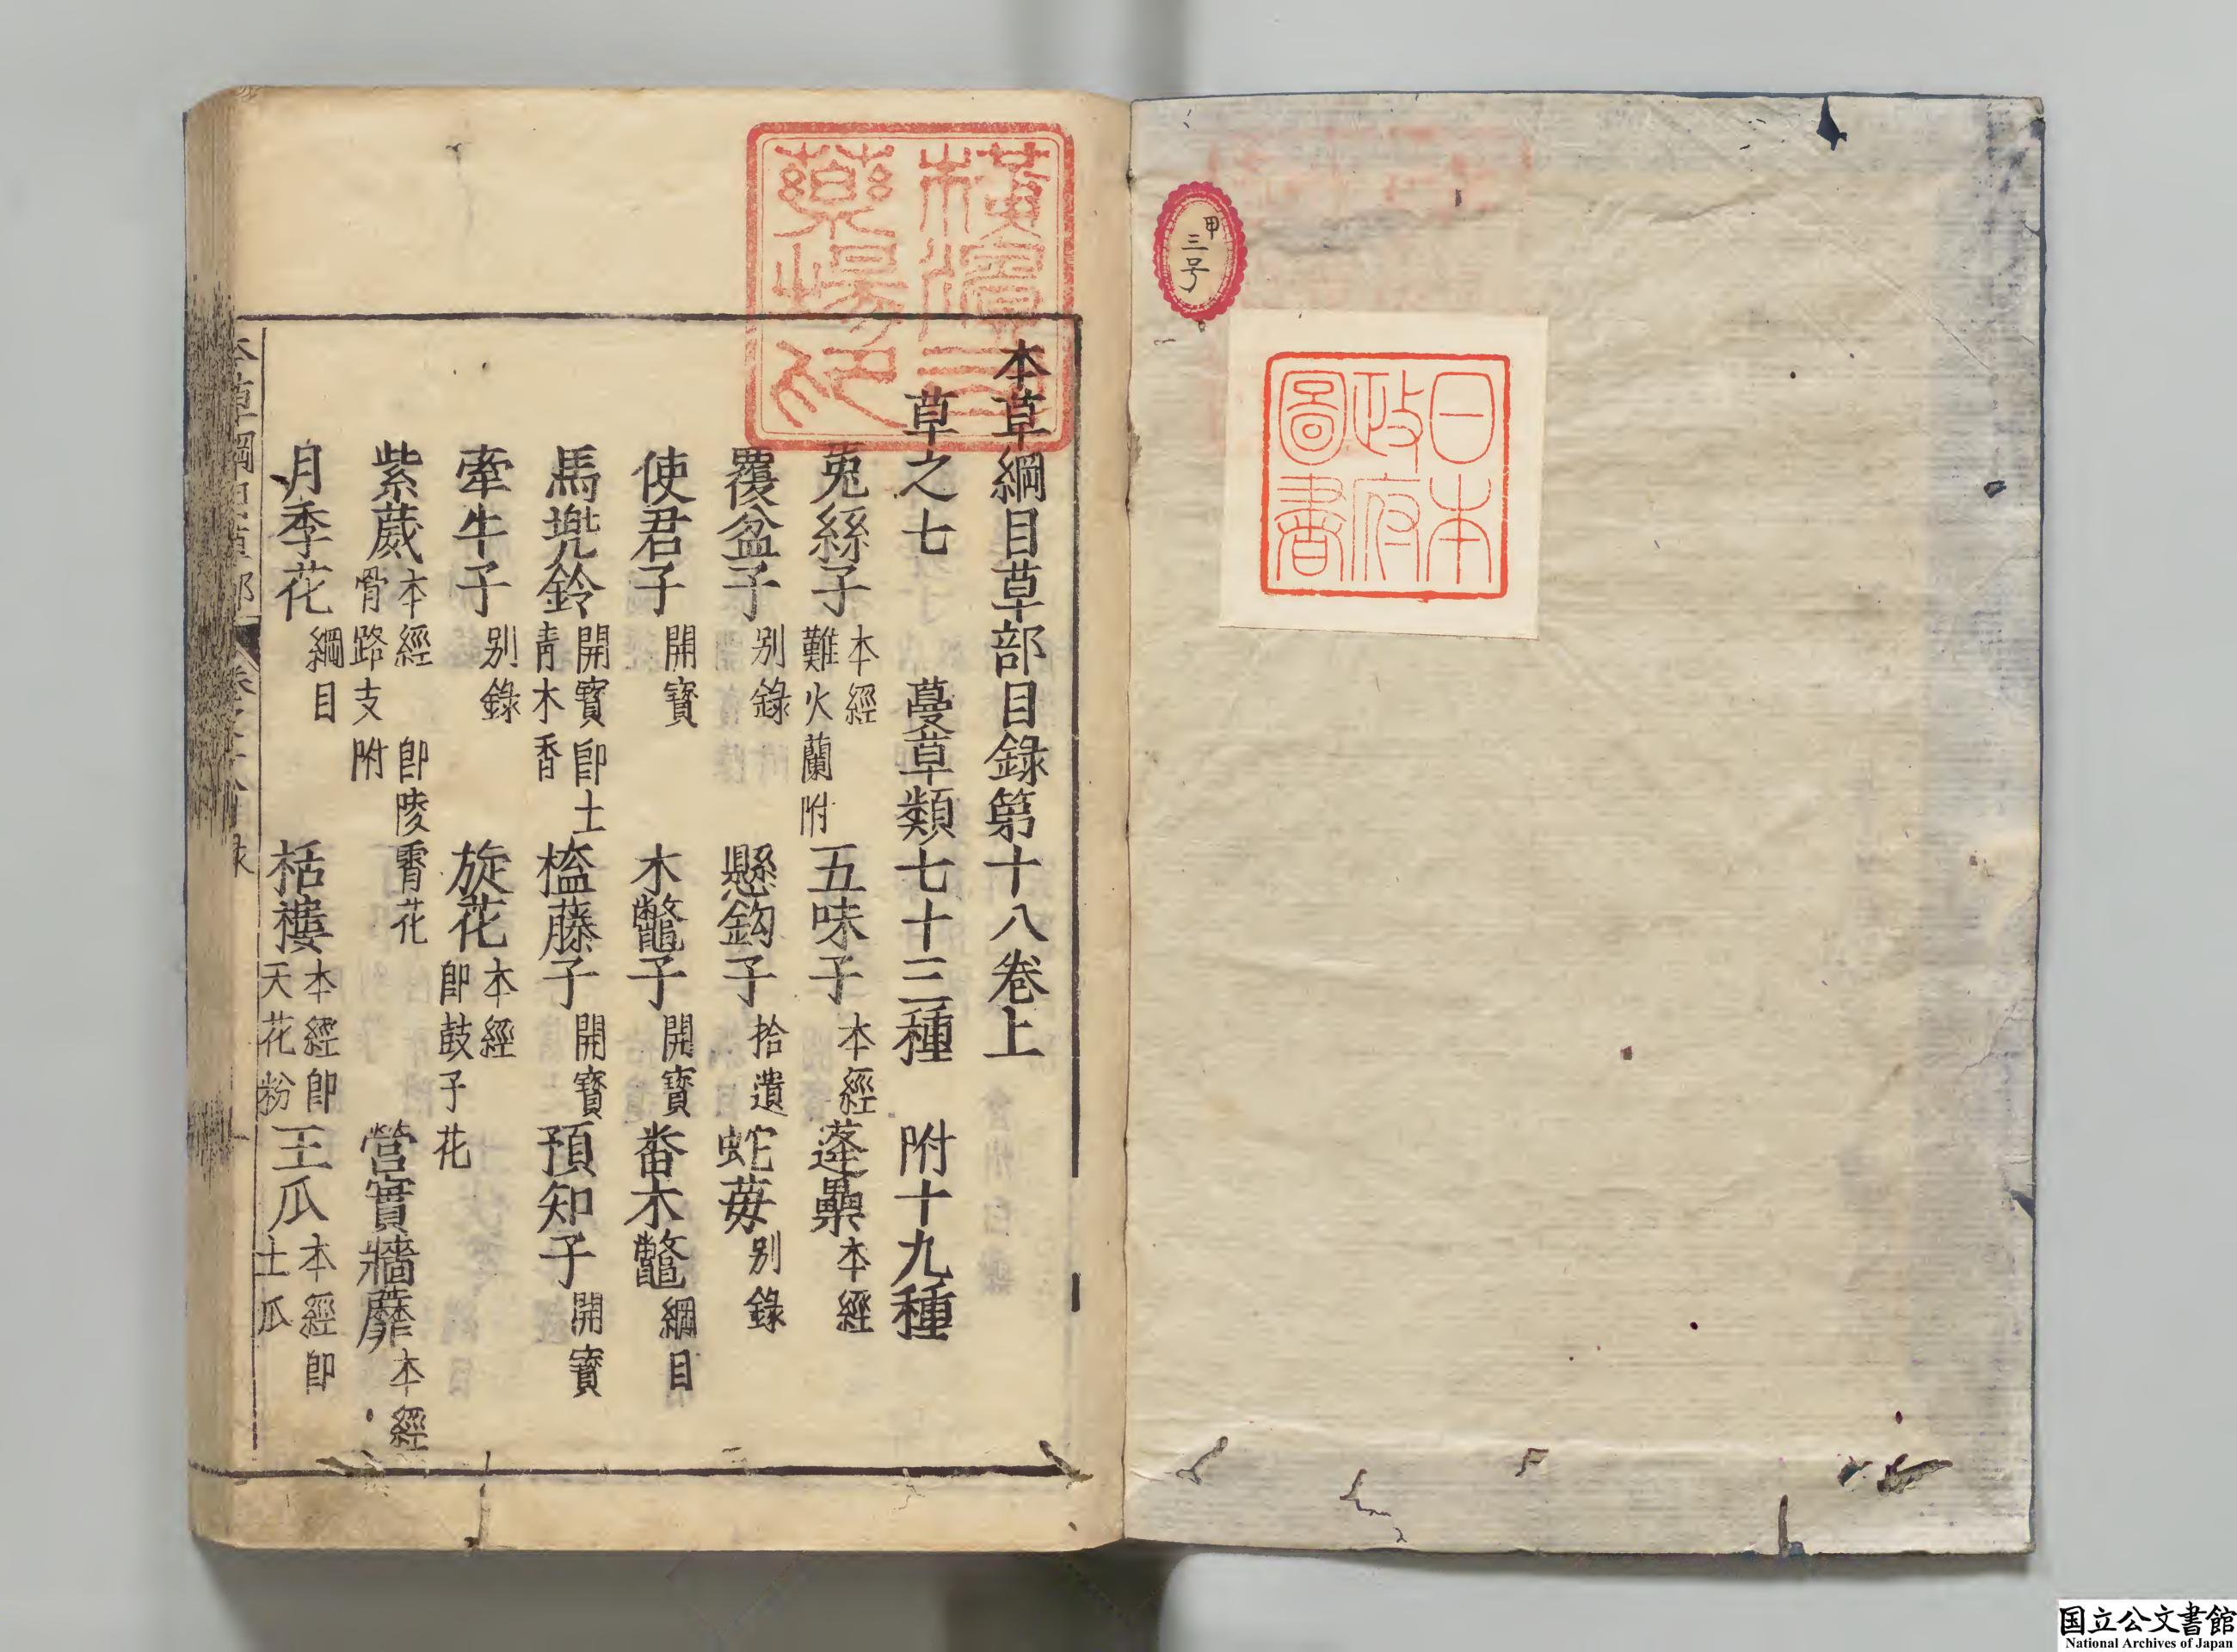 甲
三号
日本
政府
圖書
橫濱司
藥場印
本草綱目草部目錄第十八卷上
草之七 蔓草類七十三種 附十九種
兎絲子 本經 難火蘭附 五味子 本經 蓬虆 本經
覆盆子 别錄 懸鈎子 拾遺 蛇莓 别錄
使君子 開寶 木鼈子 開寶 番木鼈 綱目
馬兠鈴 開寶 卽土青木香 榼藤子 開寶 預知子 開寶
牽牛子 别錄 旋花 本經 卽鼓子花
紫葳 本經 卽陵霄花 骨路支附 營實牆蘼 本經
月季花 綱目 栝樓 本經卽天花粉 王瓜 本經卽土瓜
本草綱目草部 卷之十八目录
国立公文書館
National Archives of Japan